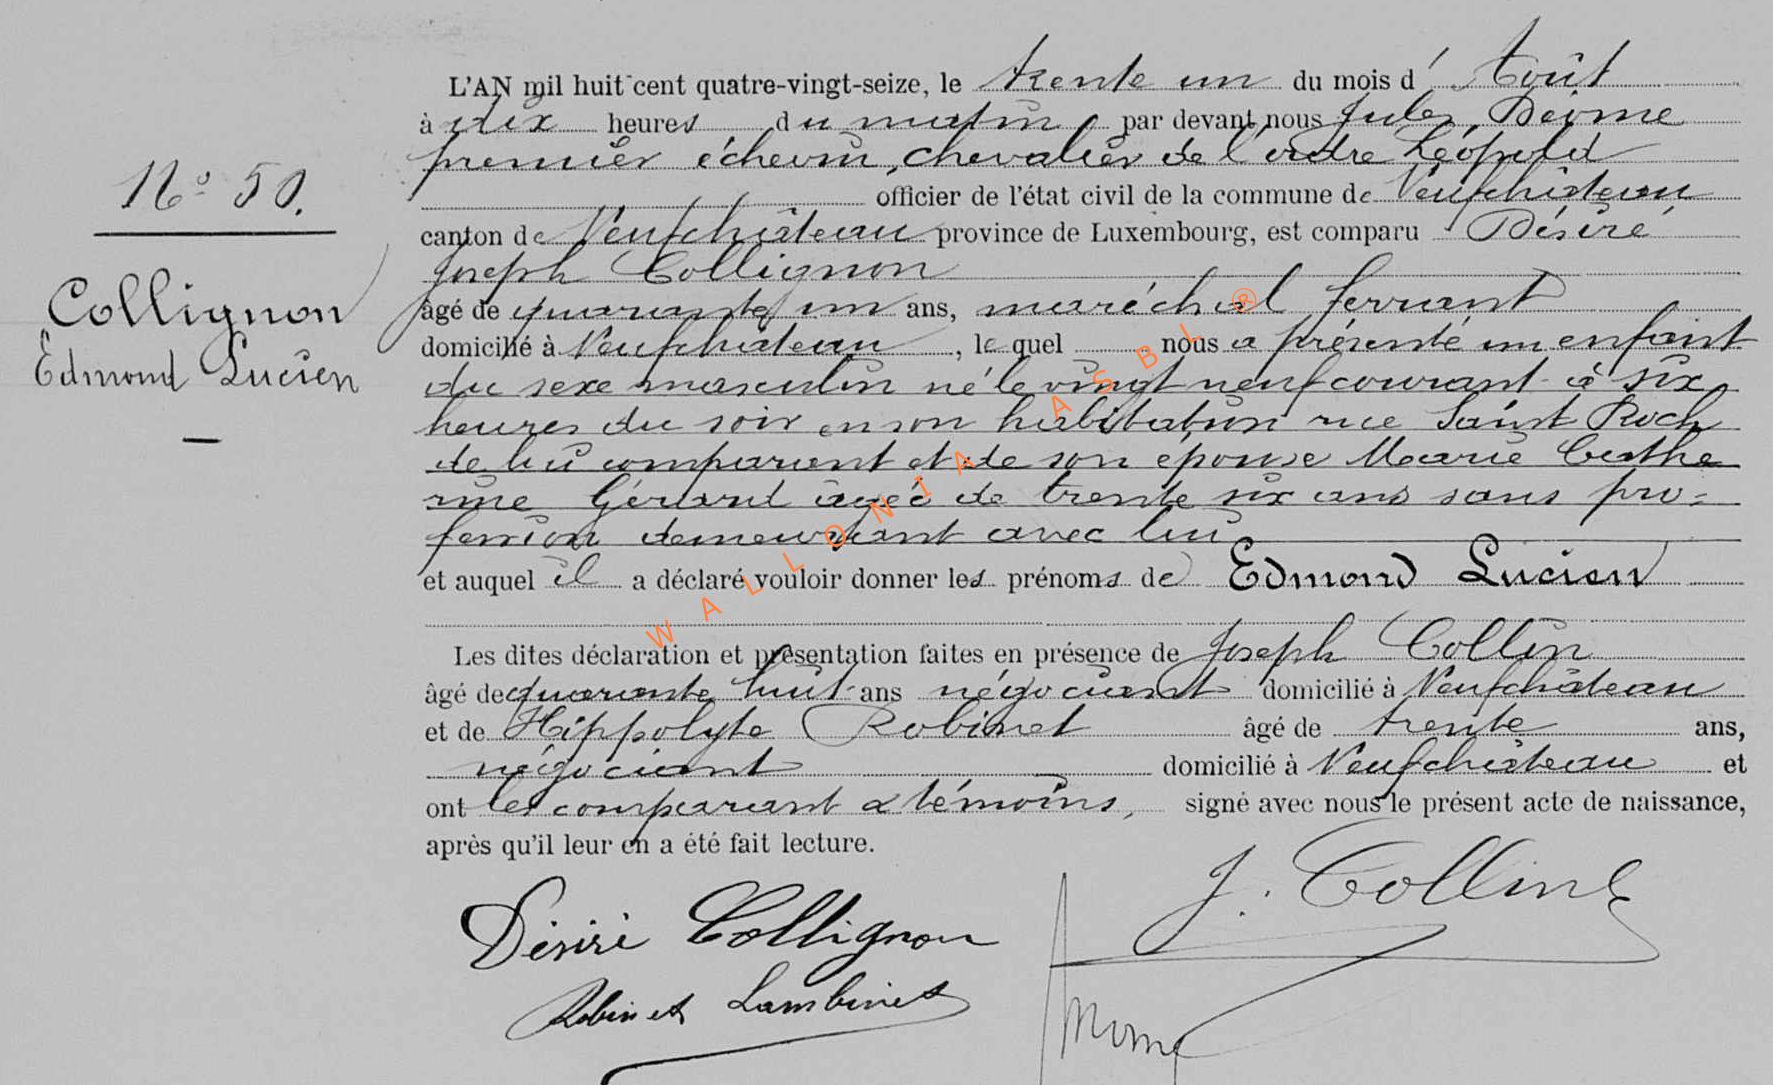 L'AN mil huit cent quatre-vingt-seize, le trente un du mois d' Août
à dix heures du matin par devant nous Jules
premier échevin, chevalier de l'ordre Léopold
officier de l'état civil de la commune de Neufchâteau
canton de Neufchâteau province de Luxembourg, est comparu Désiré
Joseph Collignon
âgé de quarante un ans, maréchal ferrant
domicilié à Neufchâteau, lequel nous a présenté un enfant
du sexe masculin né le vingt neuf courant à six
heures du soir en son habitation rue Saint Roch
de lui comparant et de son épouse Marie Cathe
rine Gérard âgée de trente six ans sans pro=
fession demeurant avec lui
et auquel il a déclaré vouloir donner les prénoms de Edmond Lucien
Les dites déclaration et présentation faites en présence de Joseph Collin
âgé de quarante huit ans négociant domicilié à Neufchâteau
et de Hippolyte Robinet âgé de trente ans,
négociant domicilié à Neufchâteau et
ont les comparant & témoins, signé avec nous le présent acte de naissance,
après qu'il leur en a été fait lecture.
No 50.
Collignon
Edmond Lucien
Désiré Collignon
J. Collin
Robinet Lambinet
WALLONIA ASBL ®